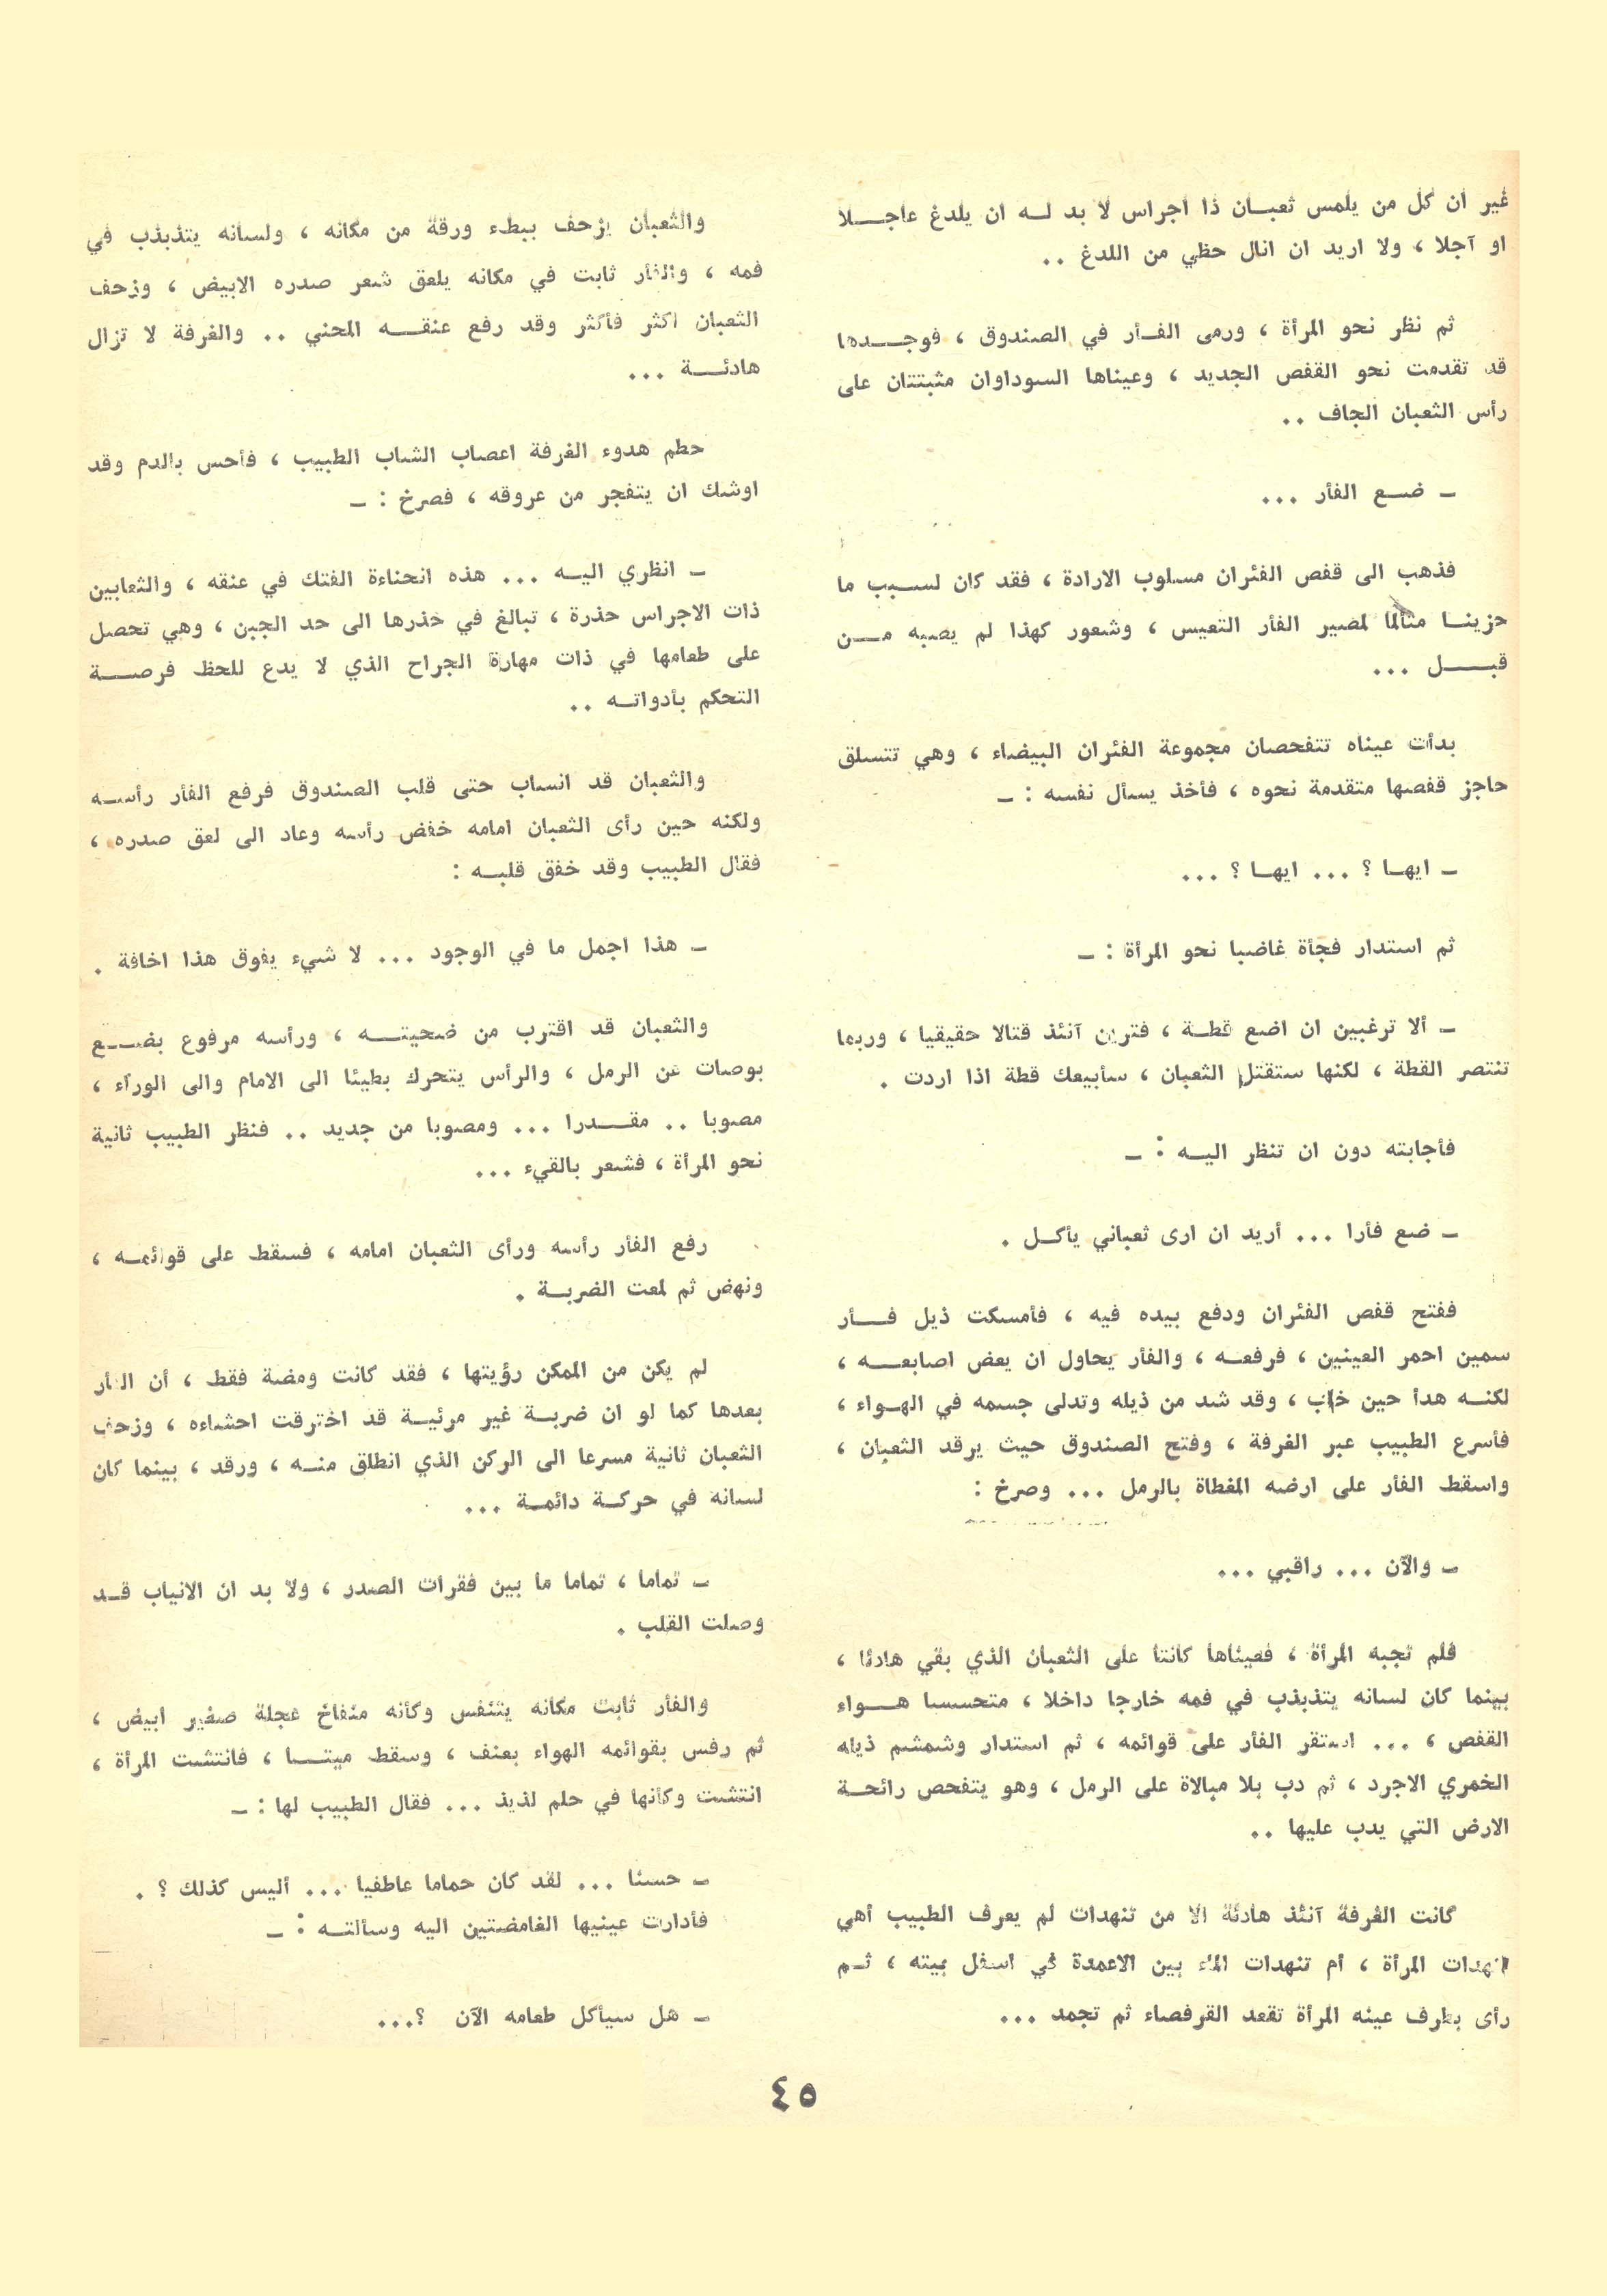 غير ان كل من يلمس ثعبان ذا اجراس لا بد له ان يلدغ عاجلا
او آجلا ، ولا اريد ان انال حظي من اللدغ ..
ثم نظر نحو المرأة ، ورمى الفأر في الصندوق ، فوجدها
قد تقدمت نحو القفص الجديد ، وعيناها السوداوان مثبتتان على
رأس الثعبان الجاف ..
ـ ضع الفأر ...
فذهب الى قفص الفئران مسلوب الارادة ، فقد كان لسبب ما
حزينا متألما لمصير الفأر التعيس ، وشعور كهذا لم يصبه من
قبل ...
بدأت عيناه تتفحصان مجموعة الفئران البيضاء ، وهي تتسلق
حاجز قفصها متقدمة نحوه ، فأخذ يسأل نفسه : ـ
ـ ايها ؟ ... ايها ؟ ...
ثم استدار فجأة غاضبا نحو المرأة : ـ
ـ ألا ترغبين ان اضع قطة ، فترين آنئذ قتالا حقيقيا ، وربما
تنتصر القطة ، لكنها ستقتل الثعبان ، سأبيعك قطة اذا اردت .
فأجابته دون ان تنظر اليه : ـ
ـ ضع فأرا ... أريد ان ارى ثعباني يأكل .
ففتح قفص الفئران ودفع بيده فيه ، فأمسكت ذيل فأر
سمين احمر العينين ، فرفعه ، والفأر يحاول ان يعض اصابعه ،
لكنه هدأ حين خاب ، وقد شد من ذيله وتدلى جسمه في الهواء ،
فأسرع الطبيب عبر الغرفة ، وفتح الصندوق حيث يرقد الثعبان ،
واسقط الفأر على ارضه المغطاة بالرمل ... وصرخ :
ـ والآن ... راقبي ...
فلم تجبه المرأة ، فعيناها كانتا على الثعبان الذي بقي هادئا ،
بينما كان لسانه يتذبذب في فمه خارجا داخلا ، متحسسا هواء
القفص ، ... استقر الفأر على قوائمه ، ثم استدار وشمشم ذيله
الخمري الاجرد ، ثم دب بلا مبالاة على الرمل ، وهو يتفحص رائحة
الارض التي يدب عليها ..
كانت الغرفة آنئذ هادئة الا من تنهدات لم يعرف الطبيب أهي
تنهدات المرأة ، أم تنهدات الماء بين الاعمدة في اسفل بيته ، ثم
رأى بطرف عينه المرأة تقعد القرفصاء ثم تجمد ...
والثعبان يزحف ببطء ورقة من مكانه ، ولسانه يتذبذب في
فمه ، والفأر ثابت في مكانه يلعق شعر صدره الابيض ، وزحف
الثعبان اكثر فأكثر وقد رفع عنقه المحني .. والغرفة لا تزال
هادئة ...
حطم هدوء الغرفة اعصاب الشاب الطبيب ، فأحس بالدم وقد
اوشك ان يتفجر من عروقه ، فصرخ : ـ
ـ انظري اليه ... هذه انحناءة الفتك في عنقه ، والثعابين
ذات الاجراس حذرة ، تبالغ في حذرها الى حد الجبن ، وهي تحصل
على طعامها في ذات مهارة الجراح الذي لا يدع للحظ فرصة
التحكم بأدواته ..
والثعبان قد انساب حتى قلب الصندوق فرفع الفأر رأسه
ولكنه حين رأى الثعبان امامه خفض رأسه وعاد الى لعق صدره ،
فقال الطبيب وقد خفق قلبه :
ـ هذا اجمل ما في الوجود ... لا شيء يفوق هذا اخافة .
والثعبان قد اقترب من ضحيته ، ورأسه مرفوع بضع
بوصات عن الرمل ، والرأس يتحرك بطيئا الى الامام والى الوراء ،
مصوبا .. مقدرا ... ومصوبا من جديد .. فنظر الطبيب ثانية
نحو المرأة ، فشعر بالقيء ...
رفع الفأر رأسه ورأى الثعبان امامه ، فسقط على قوائمه ،
ونهض ثم لمعت الضربة .
لم يكن من الممكن رؤيتها ، فقد كانت ومضة فقط ، أن الفأر
بعدها كما لو ان ضربة غير مرئية قد اخترقت احشاءه ، وزحف
الثعبان ثانية مسرعا الى الركن الذي انطلق منه ، ورقد ، بينما كان
لسانه في حركة دائمة ...
ـ تماما ، تماما ما بين فقرات الصدر ، ولا بد ان الانياب قد
وصلت القلب .
والفأر ثابت مكانه يتنفس وكأنه منفاخ عجلة صغير ابيض ،
ثم رفس بقوائمه الهواء بعنف ، وسقط ميتا ، فانتشت المرأة ،
انتشت وكأنها في حلم لذيذ ... فقال الطبيب لها : ـ
ـ حسنا ... لقد كان حماما عاطفيا ... أليس كذلك ؟ .
فأدارت عينيها الغامضتين اليه وسألته : ـ
ـ هل سيأكل طعامه الآن ؟...
٤٥